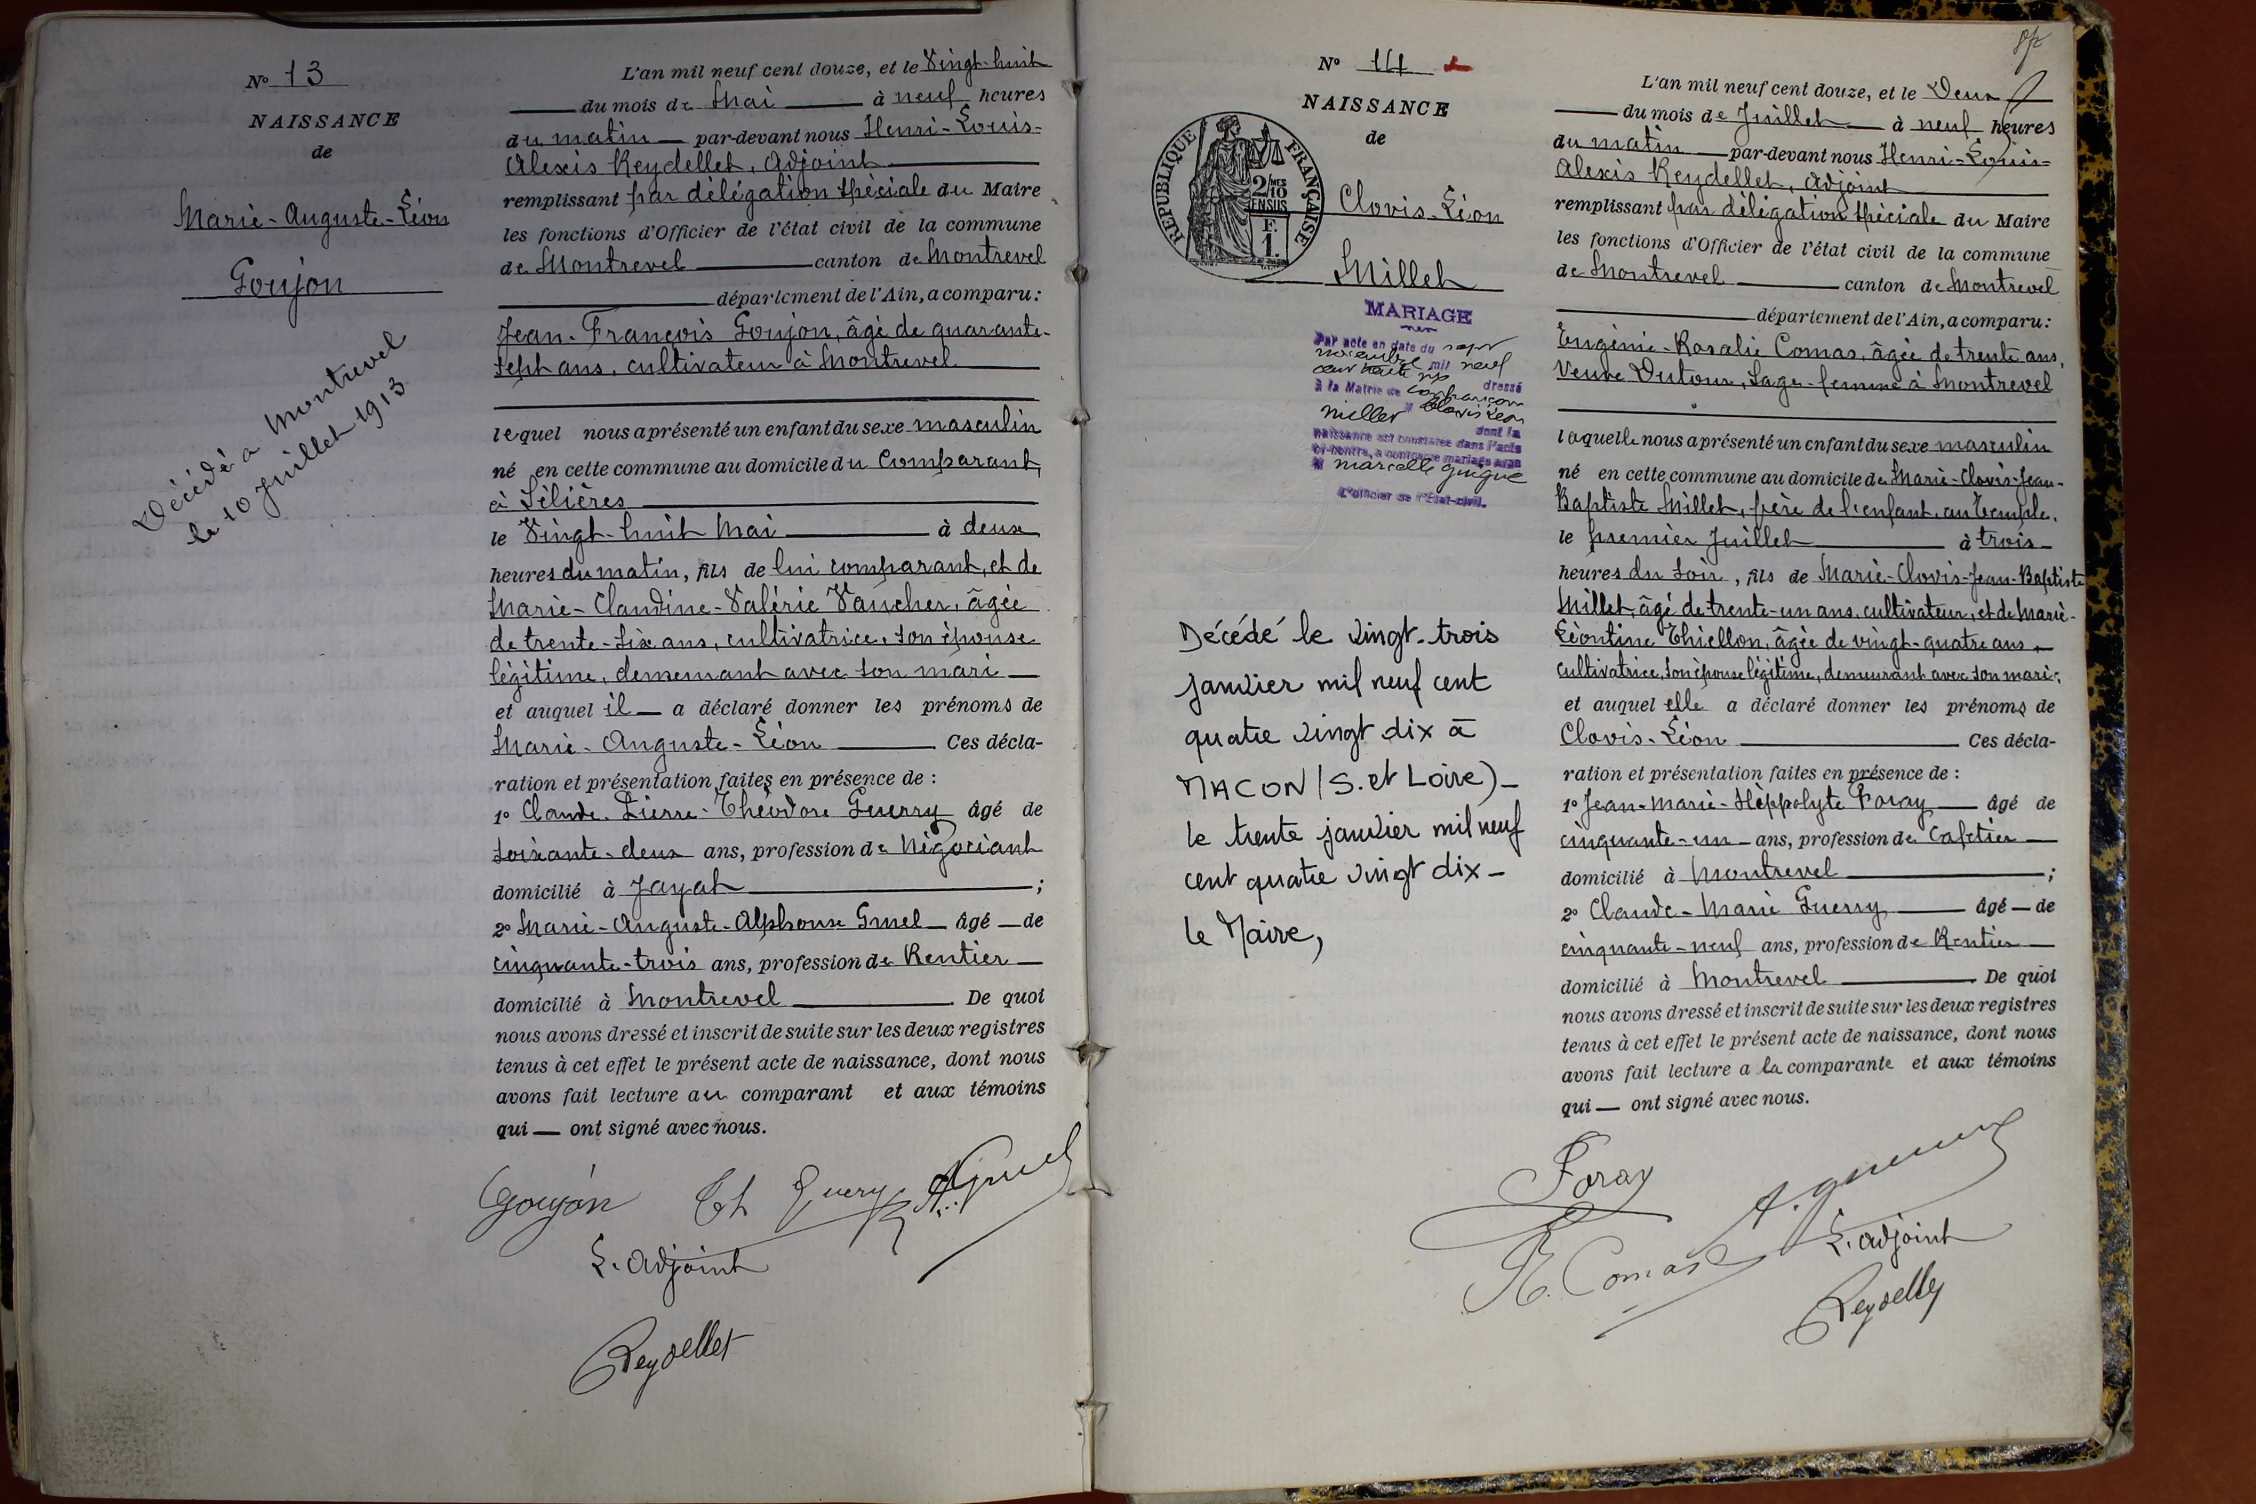 N° 13
NAISSANCE
de
Marie-Auguste-Léon
Goujon
Décédé à Montrevel
le 10 Juillet 1913
L'an mil neuf cent douze, et le Vingt-huit
du mois de Mai à neuf heures
du matin par-devant nous Henri-Louis-
Alexis Reydellet, Adjoint
remplissant par délégation spéciale du Maire
les fonctions d'Officier de l'état civil de la commune
de Montrevel canton de Montrevel
département de l'Ain, a comparu :
Jean-François Goujon, âgé de quarante-
sept ans, cultivateur à Montrevel
lequel nous a présenté un enfant du sexe masculin
né en cette commune au domicile du Comparant,
à
le Vingt-huit Mai à deux
heures du matin, fils de lui comparant, et de
Marie-Claudine-Valérie Vaucher, âgée
de trente-six ans, cultivatrice, son épouse
légitime, demeurant avec son mari
et auquel il a déclaré donner les prénoms de
Marie-Auguste-Léon Ces décla-
ration et présentation faites en présence de :
1° Claude-Pierre-Théodore Guerry âgé de
soixante-deux ans, profession de Négociant
domicilié à Jayat ;
2° Marie-Auguste-Alphonse Gruel âgé de
cinquante-trois ans, profession de Rentier
domicilié à Montrevel De quoi
nous avons dressé et inscrit de suite sur les deux registres
tenus à cet effet le présent acte de naissance, dont nous
avons fait lecture au comparant et aux témoins
qui ont signé avec nous.
Goujon Th Guerry A. Gruel
L'adjoint
Reydellet
N° 14
NAISSANCE
de
RÉPUBLIQUE FRANÇAISE
2/10
MES
EN SUS
F.
1.
Clovis-Léon
Millet
MARIAGE
Par acte en date du sept
novembre mil neuf
cent trente six dressé
à la Mairie de Confrançon
Millet Clovis Léon
dont la
naissance est constatée dans l'acte
ci-contre, a contracté mariage avec
M marcelle
L'officier de l'État-civil.
Décédé le vingt-trois
janvier mil neuf cent
quatre vingt dix à
MACON (S. et Loire)_
le trente janvier mil neuf
cent quatre vingt dix_
le Maire,
L'an mil neuf cent douze, et le Deux
du mois de Juillet à neuf heures
du matin par-devant nous Henri-Louis-
Alexis Reydellet, adjoint
remplissant par délégation spéciale du Maire
les fonctions d'Officier de l'état civil de la commune
de Montrevel canton de Montrevel
département de l'Ain, a comparu :
Eugénie-Rosalie Comas, âgée de trente ans,
Veuve Dutour, Sage-femme à Montrevel
laquelle nous a présenté un enfant du sexe masculin
né en cette commune au domicile de Marie-Clovis-Jean-
Baptiste Millet, père de l'enfant, au Temple,
le premier Juillet à trois
heures du soir, fils de Marie-Clovis-Jean-Baptiste
Millet, âgé de trente-un ans, cultivateur, et de Marie-
Léontine Thiellon, âgée de vingt-quatre ans
cultivatrice, son épouse légitime, demeurant avec son mari,
et auquel elle a déclaré donner les prénoms de
Clovis-Léon Ces décla-
ration et présentation faites en présence de :
1° Jean-Marie-Hippolyte Foray âgé de
cinquante-un ans, profession de Cafetier
domicilié à Montrevel ;
2° Claude-Marie Guerry âgé de
cinquante-neuf ans, profession de Rentier
domicilié à Montrevel De quoi
nous avons dressé et inscrit de suite sur les deux registres
tenus à cet effet le présent acte de naissance, dont nous
avons fait lecture a la comparante et aux témoins
qui ont signé avec nous.
Foray
R. Comas
L'adjoint
Reydellet